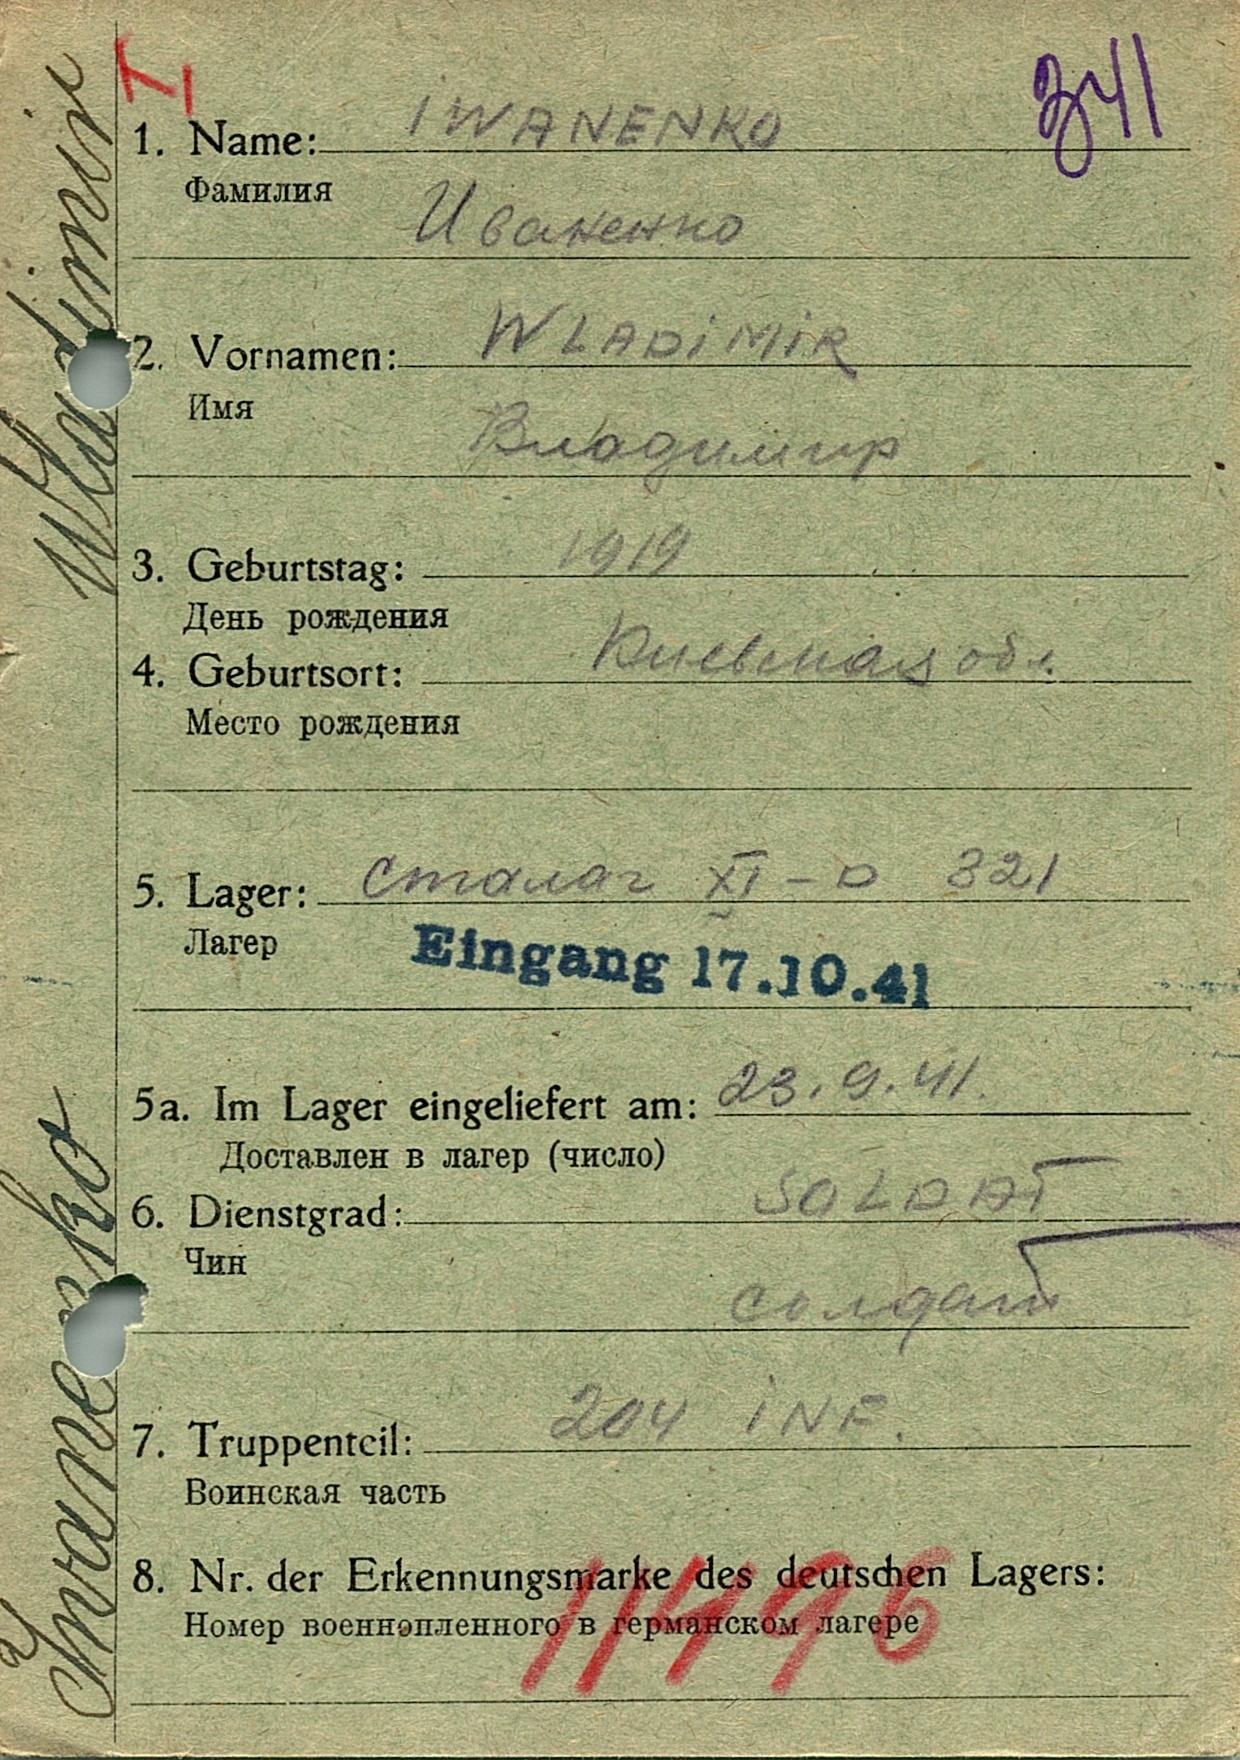 I
341
1. Name: IWANENKO
Фамилия
Иваненко
2. Vornamen: WLADIMIR
Имя
Владимир
3. Geburtstag: 1919
День рождения
4. Geburtsort: Киевская обл.
Место рождения
5. Lager: Сталаг XI-D 321
Лагер
Eingang 17.10.41
5a. Im Lager eingeliefert am: 23.9.41.
Доставлен в лагер (число)
6. Dienstgrad: SOLDAT
Чин
солдат
7. Truppenteil: 204 INF.
Воинская часть
8. Nr. der Erkennungsmarke des deutschen Lagers:
Номер военнопленного в германском лагере
11496
Iwanenko Wladimir